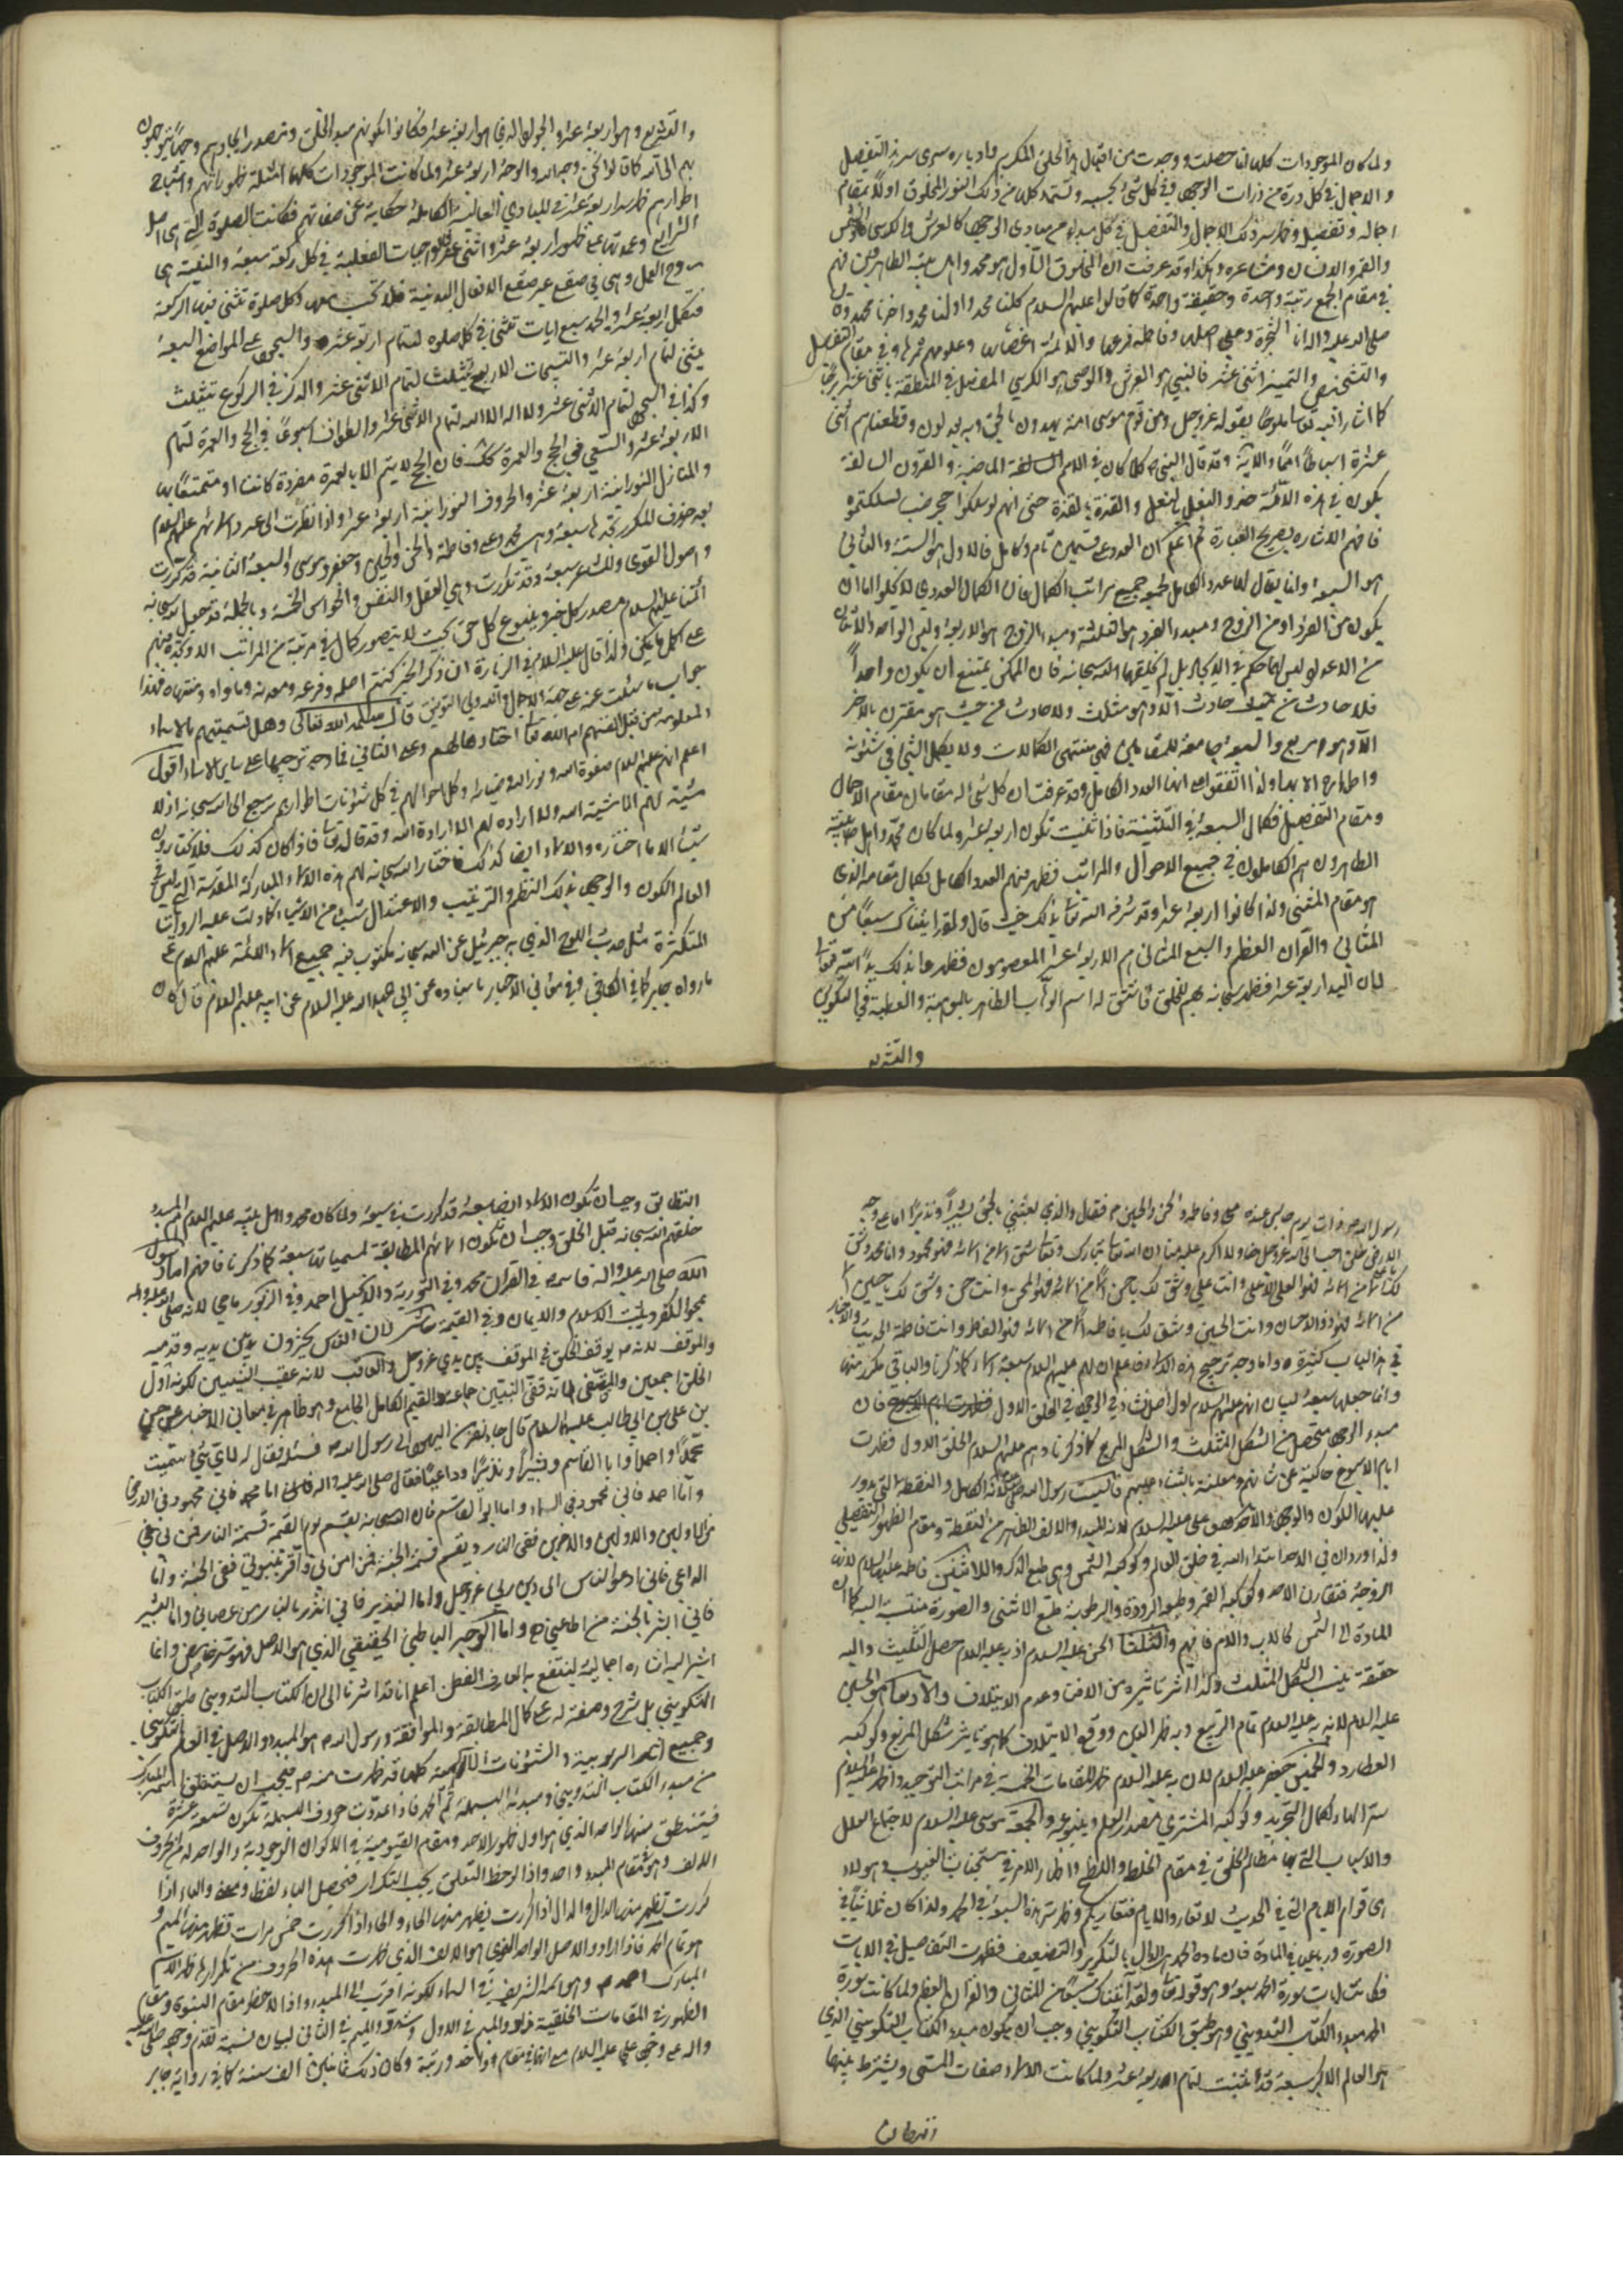 ولما كان الموجودات كلها انما حصلت ووجدت من اقبال هذا الخلق المكرم وادباره سرى سر التفصيل
والاجمال في كل ذرة من ذرات الوجود في كل شيء بحسبه وتستمد كلها من ذلك النور المخلوق اولاً بمقام
اجماله وتفصيله وظهر سر ذلك الاجمال والتفصيل في كل مبدء من مبادى الوجود كالعرش والكرسي والشمس
والقمر والانسان ومشاعره وهكذا وقد عرفت ان المخلوق الاول هو محمد واهل بيته الطاهرون فهم
في مقام الجمع رتبة واحدة وحقيقة واحدة كما قالوا عليهم السلام كلنا محمد اولنا محمد واخرنا محمد وقال
صلى الله عليه واله انا الشجرة وعلي اصلها وفاطمة فرعها والائمة اغصانها وعلومهم ثمرها وفي مقام التفصيل
والتشخص والتميز اثنى عشر فالنبي هو العرش والوصي هو الكرسي المفصل في المنطقة باثنى عشر برجاً
كما اشار اليه تعالى تلويحاً بقوله عز وجل ومن قوم موسى امة يهدون بالحق وبه يعدلون وقطعناهم اثنتى
عشرة اسباطاً امماً الاية وقد قال النبي ص كلما كان في الامم السالفة الماضية والقرون السالفة
يكون في هذه الامة حذو النعل بالنعل والقذة بالقذة حتى انهم لو سلكوا جحر ضب لسلكتموه
فافهم الاشارة بصريح العبارة ثم اعلم ان العدد على قسمين تام وكامل فالاول هو الستة والثاني
هو السبعة وانما يقال لها عدد الكامل لجمعه جميع مراتب الكمال فان الكمال العددى لا يخلو اما ان
يكون من الفرد او من الزوج ومبدء الفرد هو الثلثة ومبدء الزوج هو الاربعة وليس الواحد والاثنان
من الاعداد وليس لهما حكم في الايجاد بل لم يخلقهما الله سبحانه فان الممكن يمتنع ان يكون واحداً
فلا حادث من حيث حادث الا وهو مثلث ولا حادث من حيث هو مقترن بالاخر
الا وهو مربع والسبعة جامعة للمقامين فهي منتهى الكمالات ولا يكمل الشيء في شئونه
واطواره الا بها ولذا اتفقوا على انها العدد الكامل وقد عرفت ان كل شيء له مقامان مقام الاجمال
ومقام التفصيل فكمال السبعة في التثنية فاذا ثنيت تكون اربعة عشر ولما كان محمد واهل بيته
الطاهرون هم الكاملون في جميع الاحوال والمراتب فظهر فيهم العدد الكامل بكمال مقامه الذى
هو مقام المثنى ولذا كانوا اربعة عشر وقد شرفه الله تعالى بذلك حيث قال ولقد اتيناك سبعاً من
المثاني والقرآن العظيم والسبع المثاني هم الاربعة عشر المعصومون فظهر بذلك يد الله تعالى
لان اليد اربعة عشر فظهر سبحانه بهم للخلق فاشتق له اسم الوهاب الظاهر بالموهبة والعطية في التكوين
والتشريع
والتشريع وهو اربعة عشر والجواد الذي هو اربعة عشر فكانوا لكونهم مبدء الخلق ومصدر ايجادهم وجهاً يتوجهون
بهم الى الله كما قالوا نحن وجه الله والوجه اربعة عشر ولما كانت الموجودات كلها امثلة ظهوراتهم واشباح
اطوارهم ظهر سر اربعة عشر في المبادي العالية الكاملة حكاية عن صفاتهم فكانت الصلوة التي هى اصل
الشرايع وعمودها على ظهور اربعة عشر واثنى عشر فالواجبات الفعلية في كل ركعة سبعة والنية هى
روح العمل وهي في صقع غير صقع الافعال البدنية فلا تحسب معها وكل صلوة تثنى فيها الركعة
فتكمل اربعة عشر والحمد سبع ايات تثنى في كل صلوه لتمام اربعة عشر والسجود على المواضع السبعة
يثنى لتمام اربعة عشر والتسبيحات الاربع تثلث لتمام الاثنى عشر والذكر في الركوع تثليث
وكذا في السجود لتمام الاثنى عشر ولا اله الا الله لتمام الاثنى عشر والطواف اسبوعاً في الحج والعمرة لتمام
الاربعة عشر والسعي في الحج والعمرة كك فان الحج لا يتم الا بالعمرة مفردة كانت او متمتعاً بها
والمنازل النورانية اربعة عشر والحروف النورانية اربعة عشر واذا نظرت الى عدد اسمائهم عليهم السلام
بعد حذف المكرر تجدها سبعة وهي محمد وعلى وفاطمة والحسن والحسين وجعفر وموسى والسبعة الثانية قد كررت
واصول القوى والمشاعر سبعة وقد تكررت وهي العقل والنفس والحواس الخمسة وبالجملة قد جعل الله سبحانه
ائمتنا عليهم السلام مصدر كل خير وينبوع كل حق بحيث لا يتصور كمال في مرتبة من المراتب الا وتجده فيهم
على اكمل ما يمكن ولذا قال عليه السلام في الزيارة ان ذكر الخير كنتم اصله وفرعه ومعدنه وماواه ومنتهاه فهذا
جواب ما سئلت عنه على جهة الاجمال والله ولي التوفيق قال سلمه الله تعالى وهل تسميتهم بالاسماء
المعلومة من قبل انفسهم ام الله تعالى اختارها لهم وعلى الثاني فما وجه ترجيحها على ساير الاسماء اقول
اعلم انهم عليهم السلام صفوة الله ونور الله وخيرته وكل احوالهم في كل شئونات اطوارهم يرجع الى الله سبحانه اذ لا
مشية لهم الا مشية الله ولا ارادة لهم الا ارادة الله وقد قال تعالى فاذا كان كذلك فلا يختارون
شيئاً الا ما اختاره والاسماء ايضا كذلك فاختار الله سبحانه لهم هذه الاسماء المباركة المقدسة التي ليس في
العالم الكون والوجود بذلك النظم والترتيب والاعتدال شيء من الاشياء كما دلت عليه الروايات
المتكثرة مثل حديث اللوح الذي نزل به جبرئيل عن الله سبحانه مكتوب فيه جميع اسماء الائمة عليهم السلام على
ما رواه جابر كما في الكافي وفي معاني الاخبار باسناده عن ابي عبد الله عليه السلام عن ابيه عليهم السلام قال كان
رسول الله ص ذات يوم جالس عنده علي وفاطمة والحسن والحسين ع فقال والذي بعثني بالحق بشيراً ونذيراً ما على وجه
الارض خلق احب الى الله عز وجل ولا اكرم عليه منا ان الله تبارك وتعالى شق لي اسماً من اسمائه فهو محمود وانا محمد وشق
لك يا علي اسماً من اسمائه فهو العلي الاعلى وانت علي وشق لك يا حسن اسماً من اسمائه فهو المحسن وانت حسن وشق لك يا حسين اسماً
من اسمائه فهو ذو الاحسان وانت الحسين وشق لك يا فاطمة اسماً من اسمائه فهو الفاطر وانت فاطمة الحديث والاخبار
في هذا الباب كثيرة واما وجه ترجيح هذه الاسماء فاعلم ان لهم عليهم السلام سبعة اسماء كما ذكرنا والباقي مكرر منها
وانما جعلها سبعة لبيان انهم عليهم السلام اول اصل نشاء في الوجود في الخلق الاول فان
مبدء الوجود متحصل من الشكل المثلث والشكل المربع كما ذكرنا وهم عليهم السلام الخلق الاول فظهرت
ايام الاسبوع حاكية عن شانهم ومعلنة بالثناء عليهم فالسبت رسول الله ص لانه الكامل والنقطة التي يدور
عليها الكون والوجود والاحد هو علي عليه السلام لانه المبدء والالف الظاهر من النقطة ومقام الظهور التفصيلي
ولذا ورد ان في الاحد ابتداء الله في خلق العالم وكوكبه الشمس وهي طبع الذكر والاثنين فاطمة عليها السلام لانها
الزوجة فتقارن الاحد وكوكبه القمر وطبع البرودة والرطوبة طبع الانثى والصورة منتسبة اليها كما ان
المادة الى الشمس كالاب والام فافهم والثلثا الحسن عليه السلام اذ به عليه السلام حصل التثليث واليه
حقيقة ينسب الشكل المثلث وكذا اثر تاثيره من الافتراق وعدم الايتلاف والاربعاء هو الحسين
عليه السلام لانه به عليه السلام تمام التربيع وبه ظهر العدل ووقع الايتلاف كما هو تاثير شكل المربع وكوكبه
العطارد والخميس جعفر عليه السلام لان به عليه السلام ظهر المقامات الخمسة في مراتب التوحيد واظهر عليه السلام
ستر الهاء لكمال التجريد وكوكبه المشتري مصدر العلم وينبوعه والجمعة موسى عليه السلام لاجتماع العلل
والاسباب التي بها نظام الخلق في مقام الخلط واللطخ واظهار الامر في مستجنات الغيوب وهؤلاء
هى قوام الايام التي في الحديث لا تعادوا الايام فتعاديكم وظهر سر هذا السبعة في الحمد ولذا كان ثلاثياً في
الصورة ورباعيا في المادة فان مادة الحمد هو الدال بالتكرير والتضعيف فظهرت التفاصيل في الايات
فكانت ايات سورة الحمد سبعة وهو قوله تعالى ولقد آتيناك سبعاً من المثاني والقرآن العظيم ولما كانت سورة
الحمد مبدء الكتاب التدويني وهو طبق الكتاب التكويني وجب ان يكون مبدء الكتاب التكويني الذي
هو العالم الاكبر سبعة قد اثنيت لتمام اربعة عشر ولما كانت الاسماء صفات المسمى ويشترط بينهما
التطابق
التطابق وجب ان تكون الاسماء ايضا سبعة قد كررت في سبعة ولما كان محمد واهل بيته عليهم السلام المبدء
خلقهم الله سبحانه قبل الخلق وجب ان تكون اسمائهم المطابقة لمسمياتها سبعة كما ذكرنا فافهم اما رسول
الله صلى الله عليه واله فاسمه في القرآن محمد وفي التورية والانجيل احمد وفي الزبور ماحي لانه صلى الله عليه واله
يمحو الكفر ويثبت الاسلام والايمان وفي القيمة حاشر لان الناس يحشرون بين يديه وقدمه
والموقف لانه ص يوقف الخلق في الموقف بين يدي عز وجل والعاقب لانه عقب النبيين لكونه اول
الخلق اجمعين والمقفى لانه قفى النبيين جماعة والقيم الكامل الجامع وهو ظاهر في معاني الاخبار عن حسن
بن علي بن ابي طالب عليه السلام قال جاء نفر من اليهود الى رسول الله ص فسئله فقال له لاي شيء سميت
محمداً واحمداً وابا القاسم وبشيراً ونذيراً وداعياً فقال صلى الله عليه واله اما محمد فاني محمود في الارض
واما احمد فاني محمود في السماء واما ابو القاسم فان الله سبحانه يقسم يوم القيمة قسمة النار فمن كفر بي
من الاولين والاخرين ففي النار ويقسم قسمة الجنة فمن امن بي واقر بنبوتي ففي الجنة واما
الداعي فاني ادعو الناس الى دين ربي عز وجل واما النذير فاني انذر بالنار من عصاني واما البشير
فاني ابشر بالجنة من اطاعني ح واما الوجه الباطني الحقيقي الذي هو الاصل فهو سر غامض وانما
اشير اليه اشارة اجمالية لينتفع به العارف الفطن اعلم انا قد اشرنا الى ان الكتاب التدويني طبق الكتاب
التكويني بل شرح وصفة له على كمال المطابقة والموافقة ورسول الله ص هو المبدء والاصل في العالم التكويني
وجميع اثار الربوبية والشئونات الالهية كلها قد ظهرت منه ص فيجب ان يستنطق اسمه المبارك
من مبدء الكتاب التدويني ومبدئه البسملة ثم الحمد فاذا عددت حروف البسملة تكون تسعة عشرة
فيستنطق منها الواحد الذي هو اول ظهور الاحد ومقام القيومية في الاكوان الوجودية والواحد له من الحروف
الالف وهو مقام المبدء واحد واذا لوحظ التعلق يجب التكرار فتحصل الباء لفظاً ومعنى والباء اذا
كررت تظهر منها الدال والدال اذا كررت يظهر منها الحاء والحاء اذا كررت خمس مرات تظهر منها الميم و
هو تمام الحمد فاذا ارادوا الاصل الواحد القوى هو الالف الذي ظهرت هذه الحروف من تكرارها ظهر الاسم
المبارك احمد ص وهو اسمه الشريف في السماء لكونه اقرب الى المبدء واذا لاحظ مقام النبوة ومقام
الظهور في المقامات الخلقية فزيد والميم في الاول وشدد والميم في الثاني لبيان نسبة تقدم وجود صلى الله عليه
واله على وجود علي عليه السلام مع انهما في مقام واحد ورتبة وكان ذلك ثمانين الف سنة كما في رواية جابر